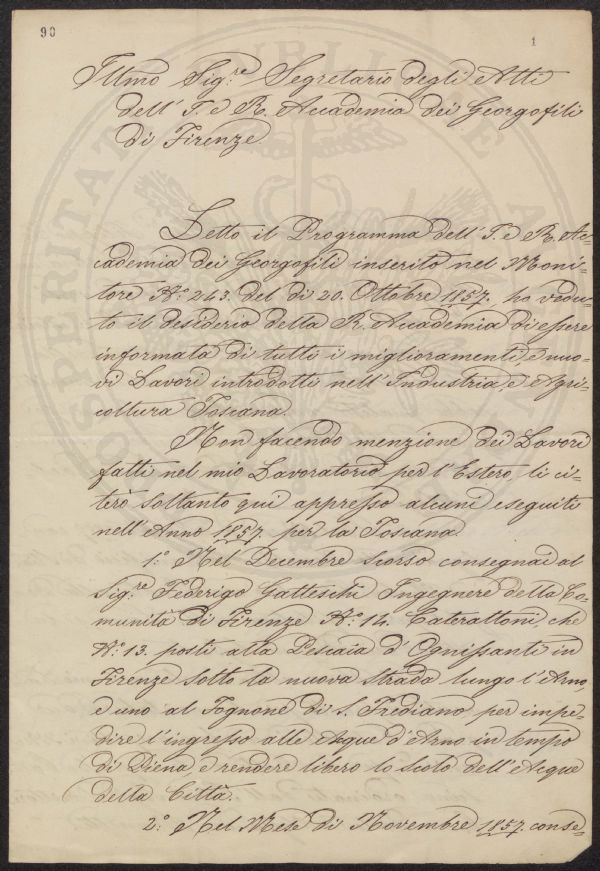 90
1
Illmo Sig.re Segretario degli Atti
dell' I. e R. Accademia dei Georgofili
di Firenze.
Letto il Programma dell' I. e R. Ac=
cademia dei Georgofili inserito nel Moni=
tore N.o 243. del dì 20. Ottobre 1857. ho vedu=
to il desiderio della R. Accademia di essere
informata di tutti i miglioramenti, e nuo=
vi Lavori introdotti nell' Industria, e Agri=
coltura Toscana.
Non facendo menzione dei Lavori
fatti nel mio Lavoratorio per l'Estero, li ci=
terò soltanto qui appresso alcuni eseguiti
nell' Anno 1857. per la Toscana.
1.o Nel Decembre scorso consegnai al
Sig.re Federigo Gatteschi Ingegnere della Co=
munità di Firenze N.o 14. Caterattoni, che
N.o 13. posti alla Pescaia d' Ognissanti in
Firenze sotto la nuova strada lungo l'Arno,
e uno al Fognone di S. Frediano, per impe=
dire l'ingresso alle Acque d'Arno in tempo
di Piena, e rendere libero lo scolo dell' Acque
della Città.
2.o Nel Mese di Novembre 1857. conse=
PUBLICAE
PROSPERITATI